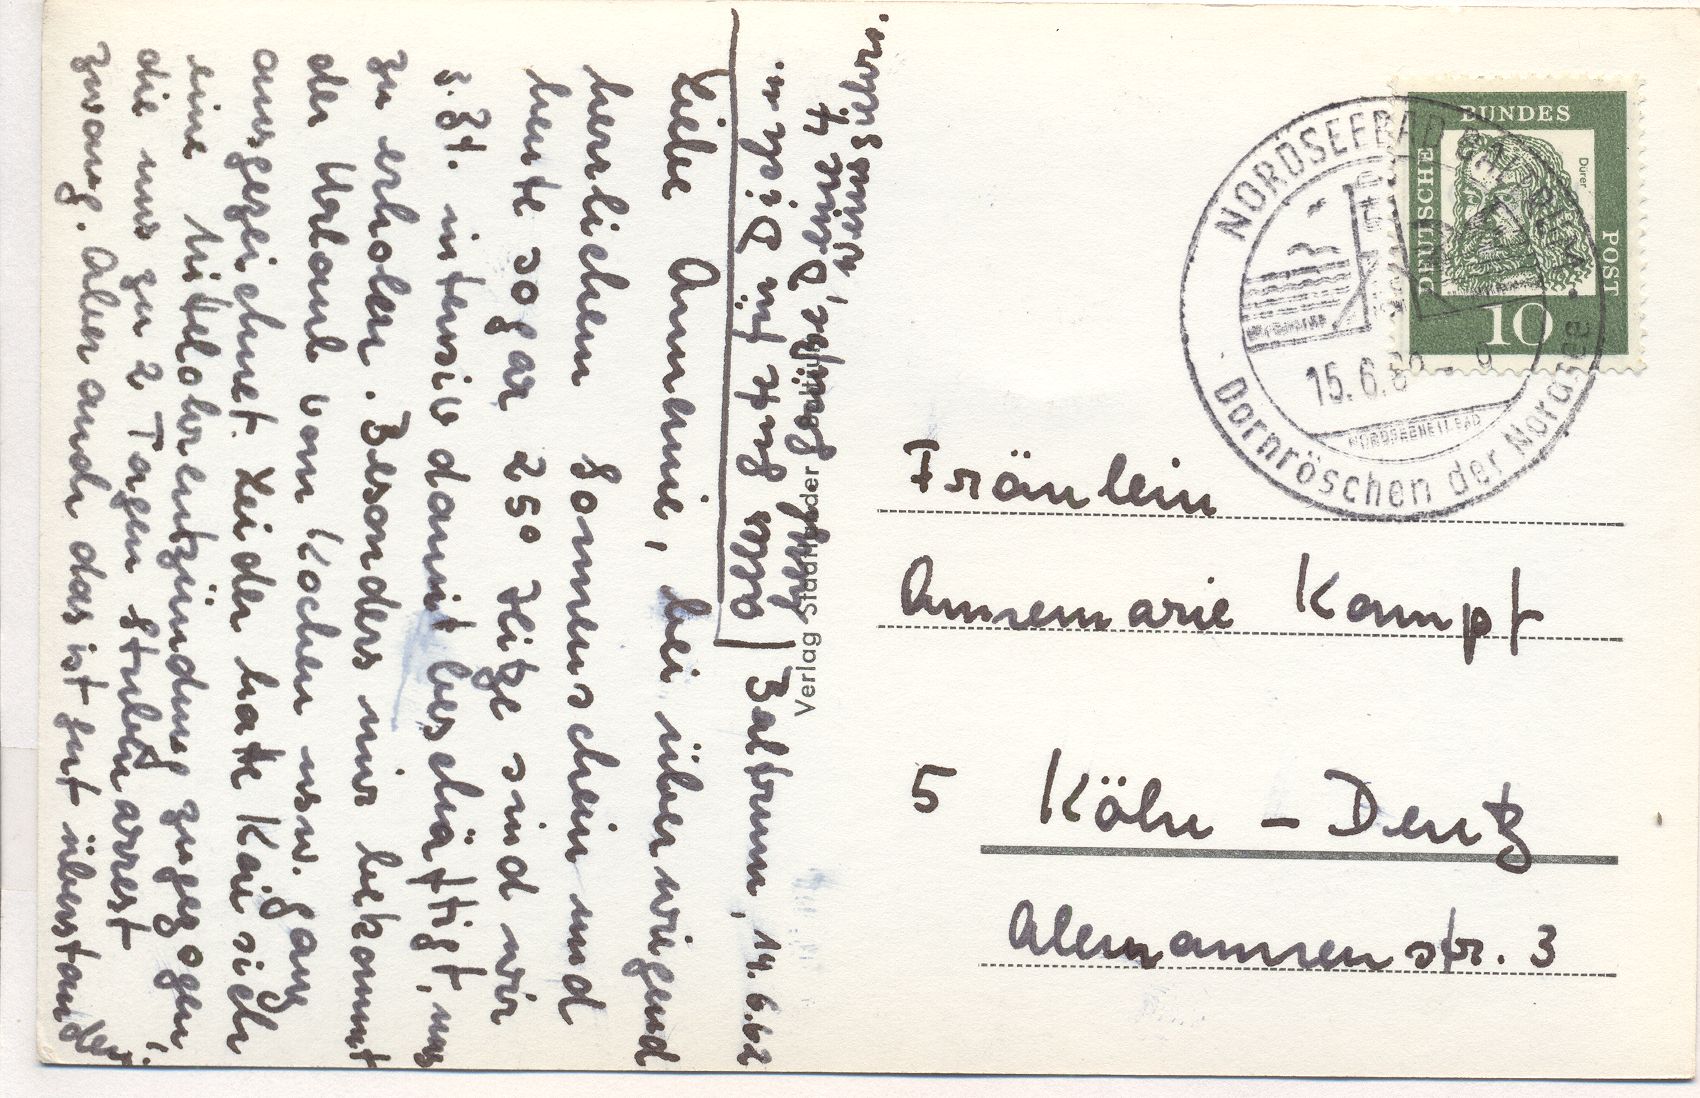 Baltrum, 14.6.62
Liebe Annemie, bei überwiegend
herrlichem Sonnenschein und
heute sogar 25° Hitze sind wir
z.Zt. intensiv damit beschäftigt, uns
zu erholen. Besonders mir bekommt
der Urlaub vom Kochen usw. ganz
ausgezeichnet. Leider hatte Kai sich
eine Mittelohrentzündung zugezogen,
die uns zu 2 Tagen Stubenarrest
zwang. Aber auch das ist gut überstanden.
alles Gute für Dich u.
herzl. Grüße, Deine 4
BUNDES
POST
DEUTSCHE
Dürer
10
NORDSEEBAD BALTRUM
15.6.62 - 9
NORDSEEHEILBAD
Dornröschen der Nordsee
Fräulein
Annemarie Kampf
5 Köln - Deutz
Alemannenstr. 3